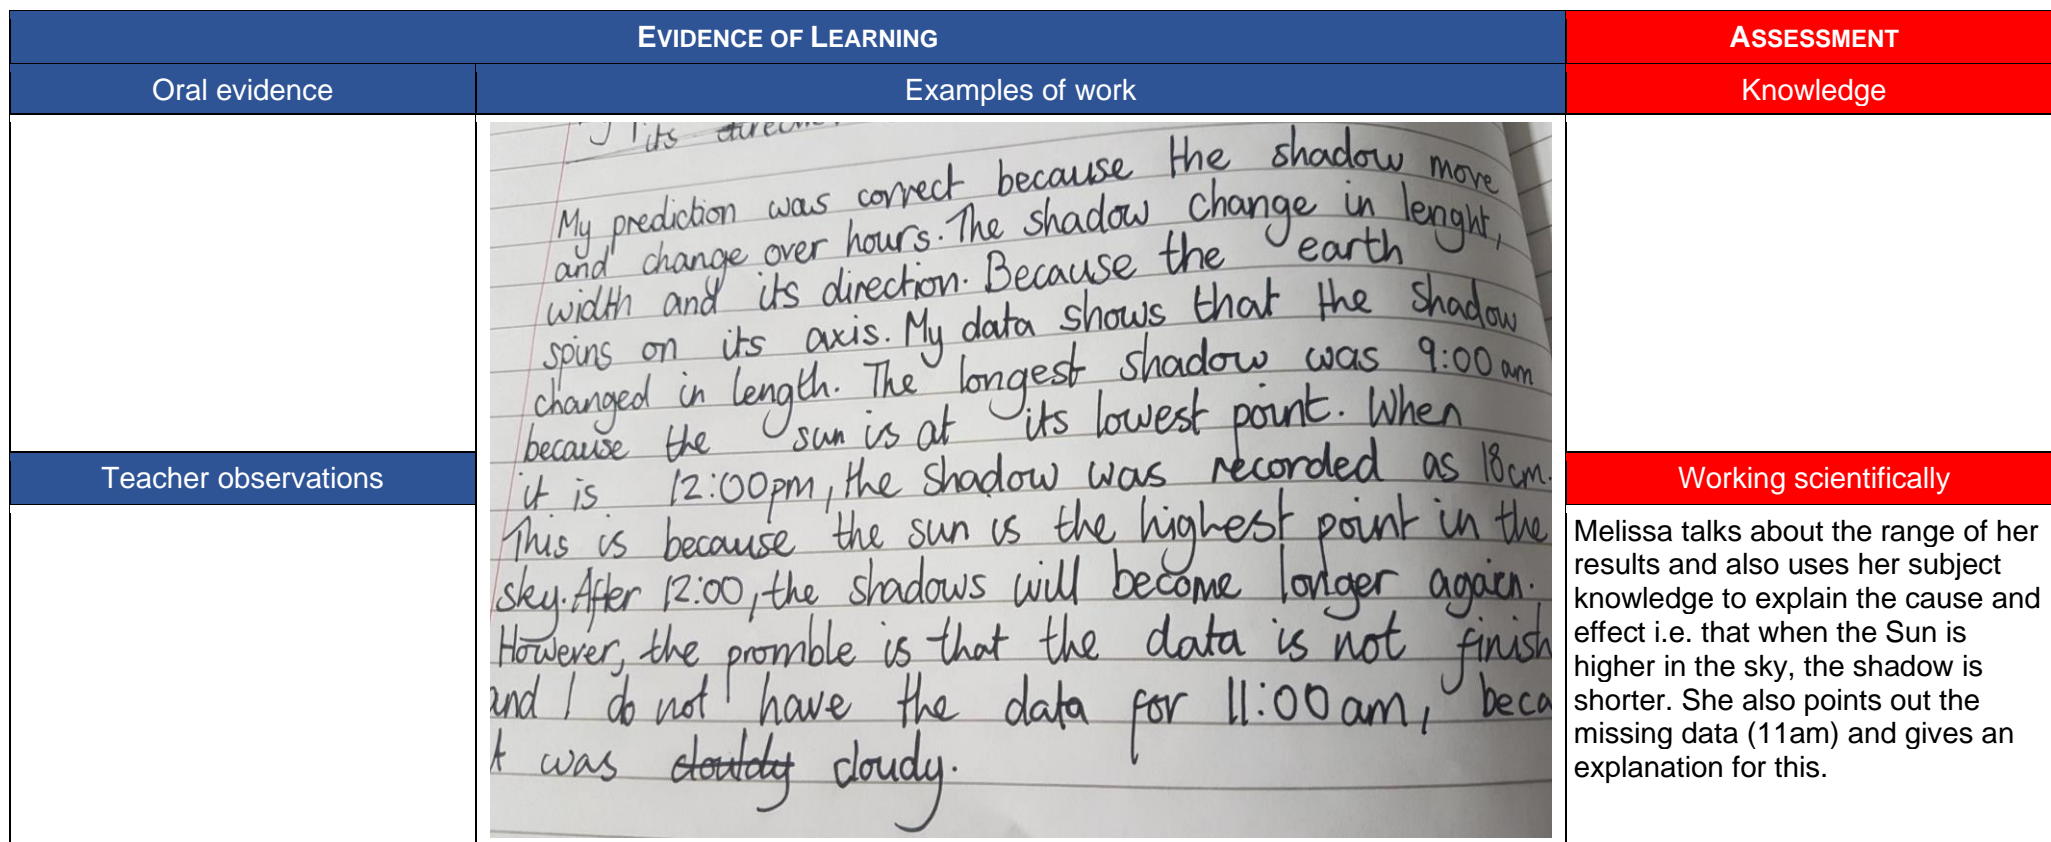 EVIDENCE OF LEARNING
ASSESSMENT
Oral evidence
Examples of work
Knowledge
its direc
My prediction was correct because the shadow move
and change over hours. The shadow change in lenght,
width and its direction. Because the earth
spins on its axis. My data shows that the shadow
changed in length. The longest shadow was 9:00 am
because the sun is at its lowest point. When
it is 12:00pm, the shadow was recorded as 18cm.
This is because the sun is the highest point in the
sky. After 12:00, the shadows will become longer again.
However, the promble is that the data is not finish
and I do not have the data for 11:00 am, beca
t was clouldy cloudy.
Teacher observations
Working scientifically
Melissa talks about the range of her
results and also uses her subject
knowledge to explain the cause and
effect i.e. that when the Sun is
higher in the sky, the shadow is
shorter. She also points out the
missing data (11am) and gives an
explanation for this.